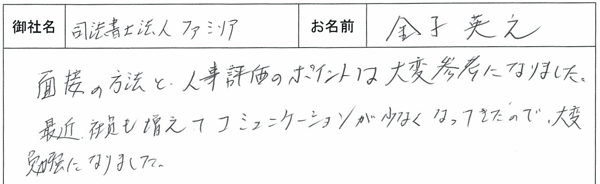 御社名 司法書士法人 ファミリア お名前 金子 英之
面接の方法と、人事評価のポイントは大変参考になりました。
最近、社員も増えてコミュニケーションが少なくなってきたので、大変
勉強になりました。